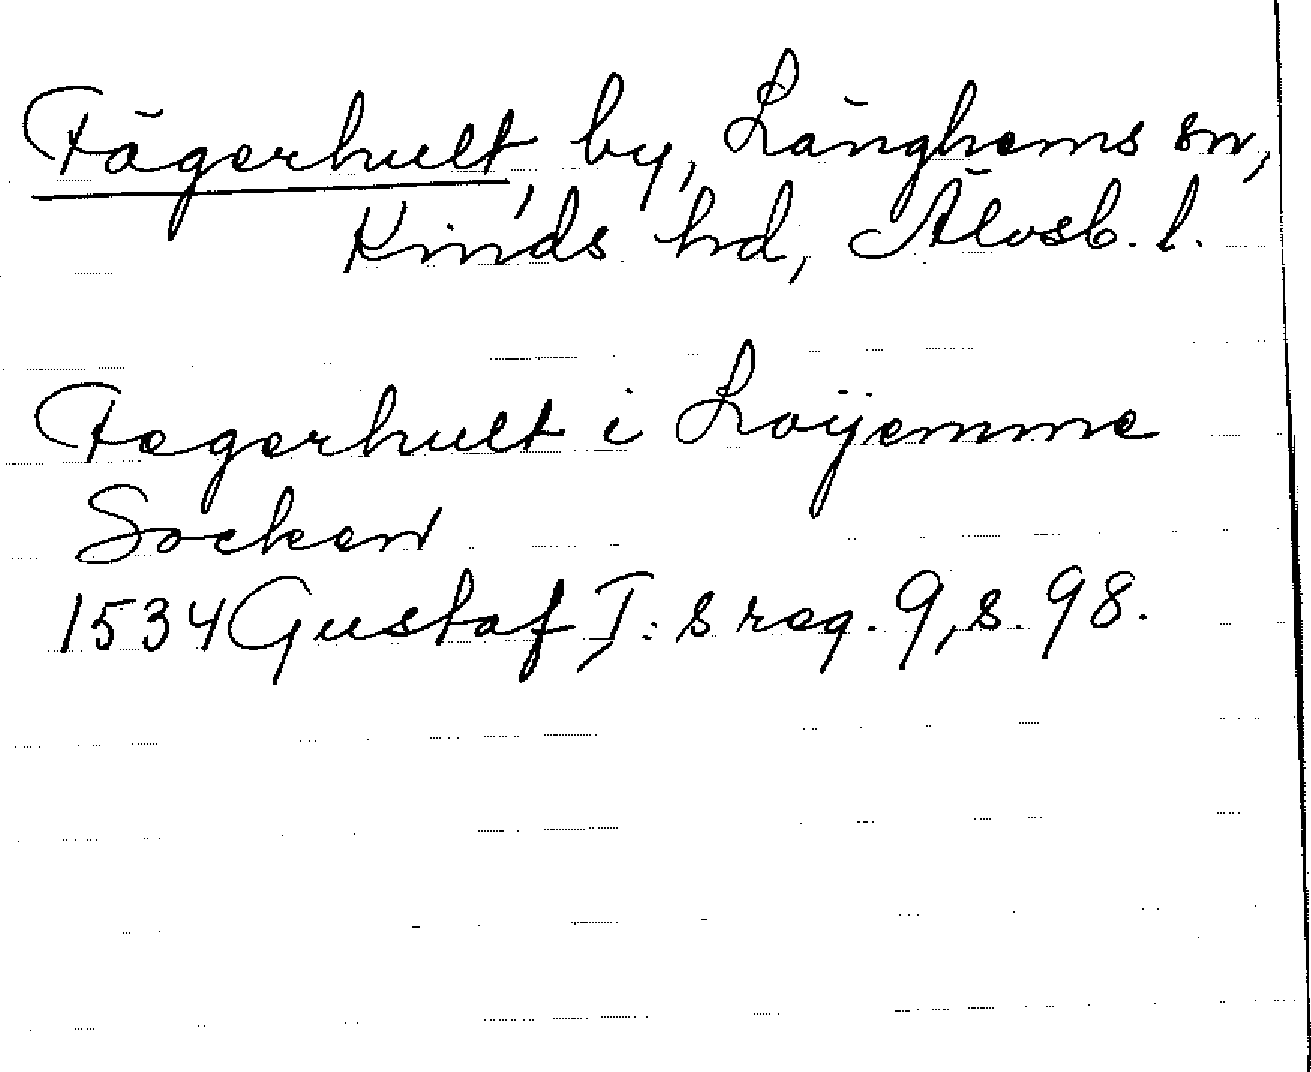 Fägerhult, by, Länghems sn,
Kinds hd, Älvsb. l.
Fegerhult i Loÿemme
Socken
1534 Gustaf I:s reg. 9, s. 98.